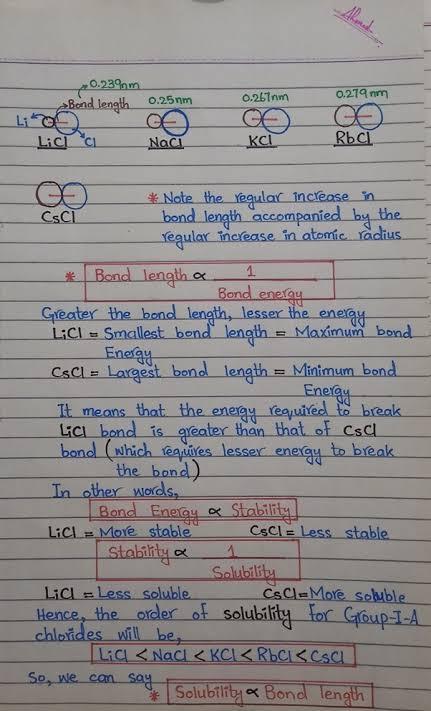 Ahmed
0.239nm
Bond length 0.25nm 0.267nm 0.279nm
Li Cl
LiCl NaCl KCl RbCl
CsCl
* Note the regular increase in
bond length accompanied by the
regular increase in atomic radius
* Bond length ∝ 1
Bond energy
Greater the bond length, lesser the energy
LiCl = Smallest bond length = Maximum bond
Energy
CsCl = Largest bond length = Minimum bond
Energy
It means that the energy required to break
LiCl bond is greater than that of CsCl
bond (which requires lesser energy to break
the bond)
In other words,
Bond Energy ∝ Stability
LiCl = More stable CsCl = Less stable
Stability ∝ 1
Solubility
LiCl = Less soluble CsCl = More soluble
Hence, the order of solubility for Group-I-A
chlorides will be,
LiCl < NaCl < KCl < RbCl < CsCl
So, we can say
* Solubility ∝ Bond length